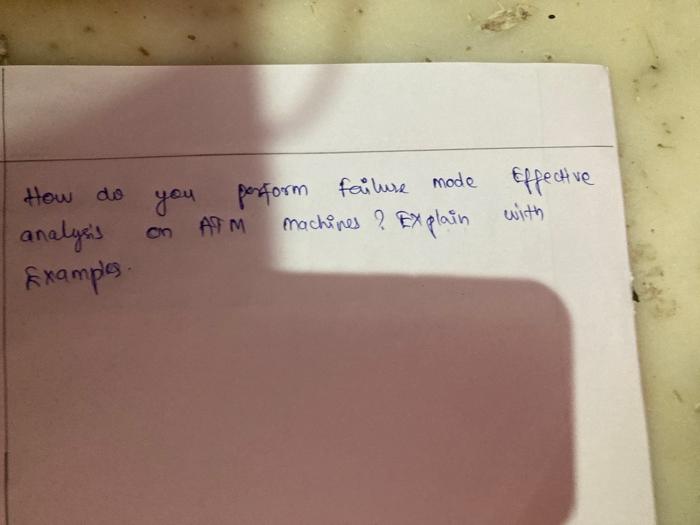 How do you perform failure mode Effective
analysis on ATM machines? Explain with
Examples.